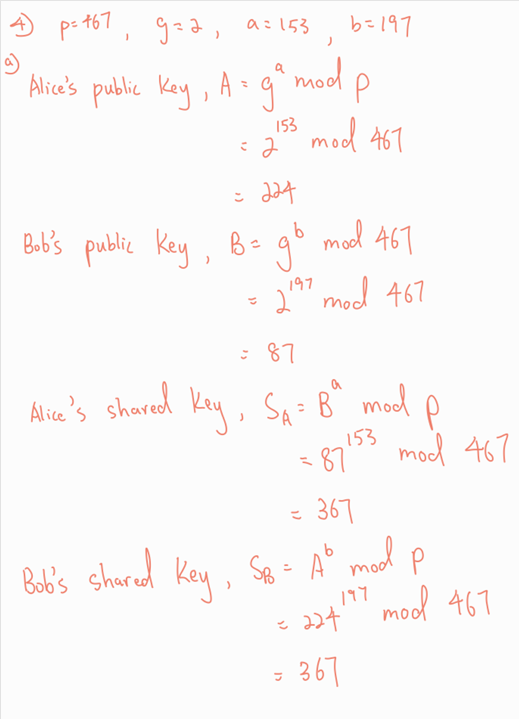 ④ p=467 , g=2 , a=153 , b=197
a)
Alice's public key , A = g^a mod p
= 2^153 mod 467
= 224
Bob's public key , B = g^b mod 467
= 2^197 mod 467
= 87
Alice's shared key , S_A = B^a mod p
= 87^153 mod 467
= 367
Bob's shared key , S_B = A^b mod p
= 224^197 mod 467
= 367